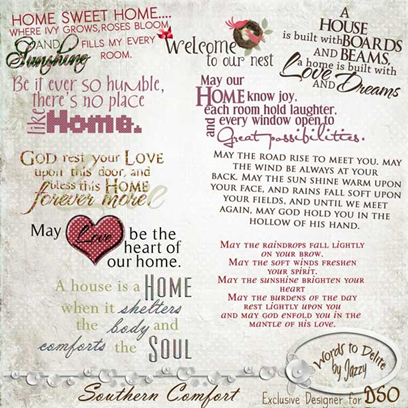 HOME SWEET HOME....
WHERE IVY GROWS, ROSES BLOOM,
AND FILLS MY EVERY
Sunshine ROOM.
Welcome
to our nest
A
HOUSE
is built with BOARDS
AND BEAMS,
a home is built with
Love AND Dreams
Be it ever so humble,
there's no place
like Home.
May our
HOME know joy,
each room hold laughter,
and every window open to
Great possibilities.
GOD rest your LOVE
upon this door, and
bless this HOME
forever more
MAY THE ROAD RISE TO MEET YOU. MAY
THE WIND BE ALWAYS AT YOUR
BACK. MAY THE SUN SHINE WARM UPON
YOUR FACE, AND RAINS FALL SOFT UPON
YOUR FIELDS, AND UNTIL WE MEET
AGAIN, MAY GOD HOLD YOU IN THE
HOLLOW OF HIS HAND.
May Love be the
heart of
our home.
MAY THE RAINDROPS FALL LIGHTLY
ON YOUR BROW.
MAY THE SOFT WINDS FRESHEN
YOUR SPIRIT.
MAY THE SUNSHINE BRIGHTEN YOUR
HEART
MAY THE BURDENS OF THE DAY
REST LIGHTLY UPON YOU
AND MAY GOD ENFOLD YOU IN THE
MANTLE OF HIS LOVE.
A house is a HOME
when it shelters
the body and
comforts the SOUL
Words to Delite
by Jazzy
Southern Comfort
Exclusive Designer for DSO